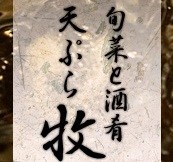 旬菜と酒肴
天ぷら 牧